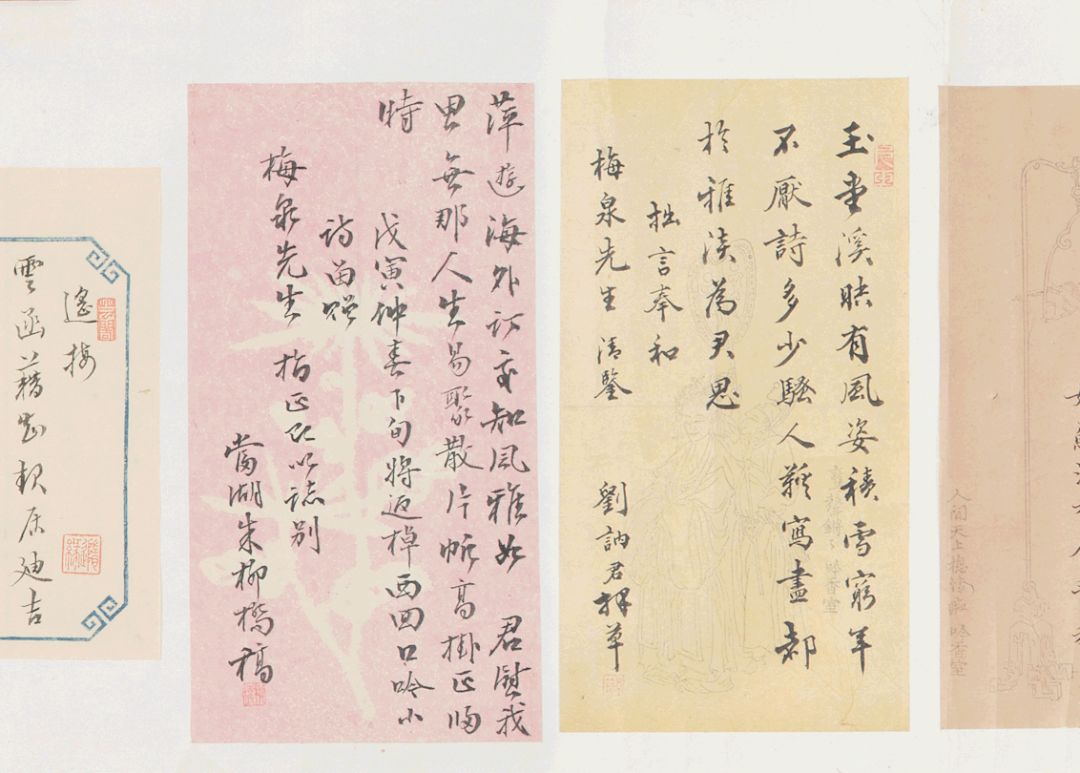 人間天上總 吟香室
玉堂溪畔有風姿積雪窮年
不厭詩多少騷人難寫盡都
於雅淡為君思
拙言奉和
梅泉先生清鑒 劉訥君拜草
萍遊海外訂交知風雅如君慰我
思無那人生易聚散片帆高掛正歸
時
戊寅仲春下旬將返棹西回口吟小
詩留贈
梅泉先生指正即以誌別
當湖朱柳橋稿
遙接
雲函藉知起居迪吉